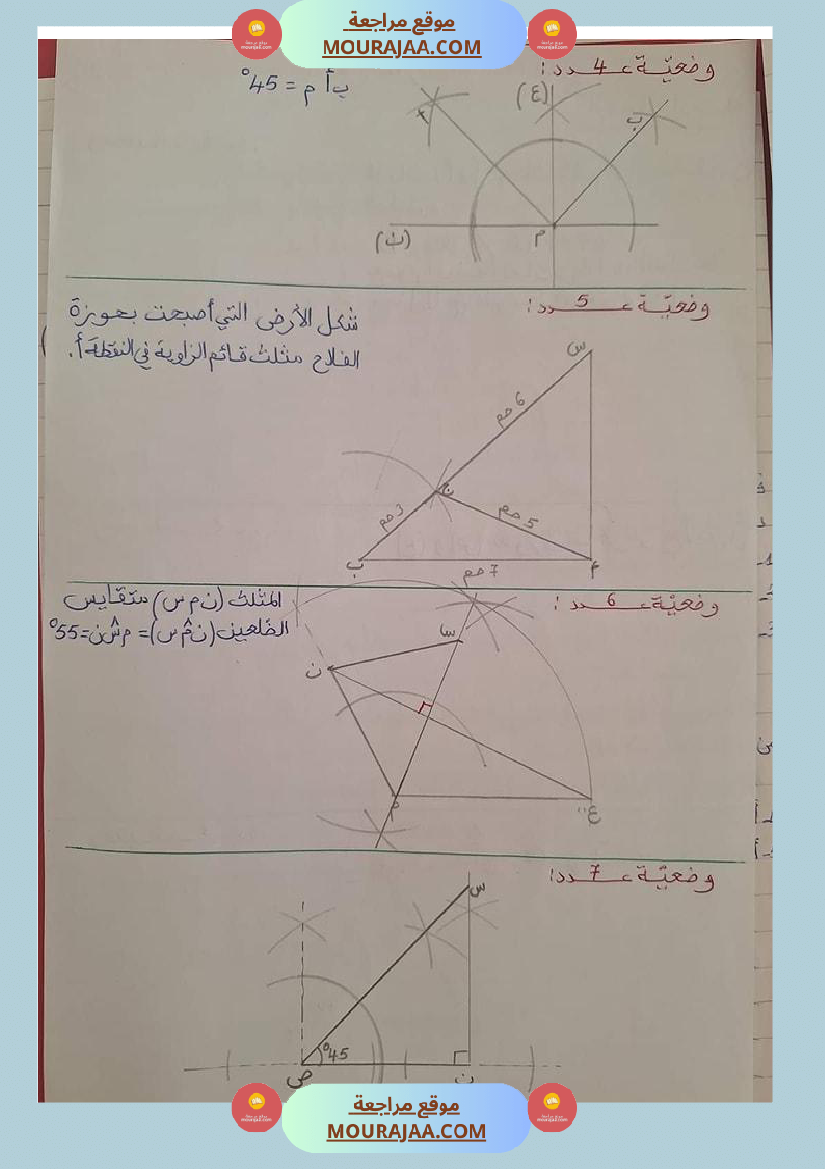 موقع مراجعة
MOURAJAA.COM
وضعيّة عـ 4 ـدد:
ب أ م = 45°
(ع)
ب
(ك)
م
وضعيّة عـ 5 ـدد:
شكل الأرض التي أصبحت بحوزة
الفلاح مثلث قائم الزاوية في النقطة أ.
س
6 صم
ج
3 صم
5 صم
ب
7 صم
أ
وضعيّة عـ 6 ـدد:
المثلث (ن م س) متقايس
الضلعين (ن م س) = م س ن = 55°
س
ن
م
ع
وضعيّة عـ 7 ـدد:
س
45°
ص
ن
موقع مراجعة
MOURAJAA.COM